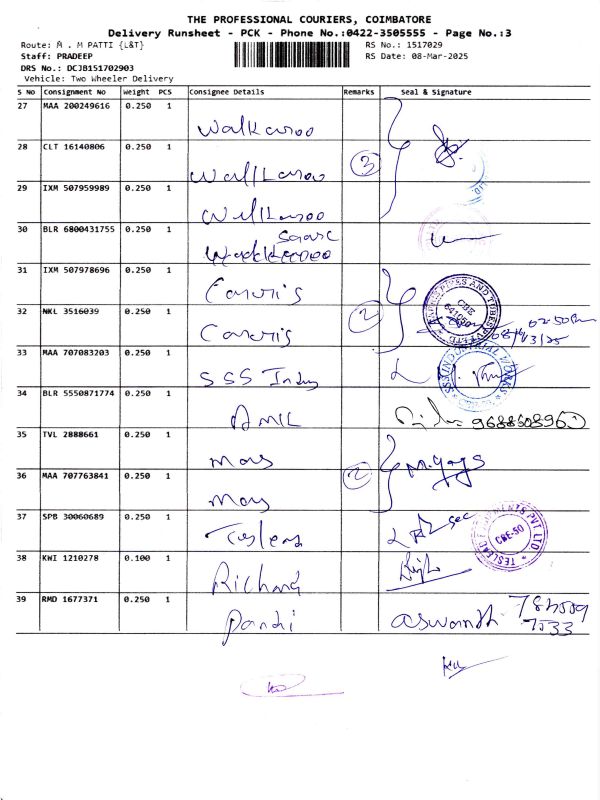 THE PROFESSIONAL COURIERS, COIMBATORE
Delivery Runsheet - PCK - Phone No.:0422-3505555 - Page No.:3
Route: M . M PATTI {L&T}
RS No.: 1517029
Staff: PRADEEP
RS Date: 08-Mar-2025
DRS No.: DCJB151702903
Vehicle: Two Wheeler Delivery
S No Consignment No Weight PCS Consignee Details Remarks Seal & Signature
27 MAA 200249616 0.250 1
Walkaroo
28 CLT 16140806 0.250 1
3
Walkaroo
29 IXM 507959989 0.250 1
Walkaroo
30 BLR 6800431755 0.250 1
31 IXM 507978696 0.250 1
32 NKL 3516039 0.250 1
2
CBE
02:50Pm
33 MAA 707083203 0.250 1
SSS Indus
34 BLR 5550871774 0.250 1
AMIL
35 TVL 2888661 0.250 1
Mars
36 MAA 707763841 0.250 1
2
Mars
37 SPB 30060689 0.250 1
CBE-50
38 KWI 1210278 0.100 1
Richard
39 RMD 1677371 0.250 1
Pandi
aswanth